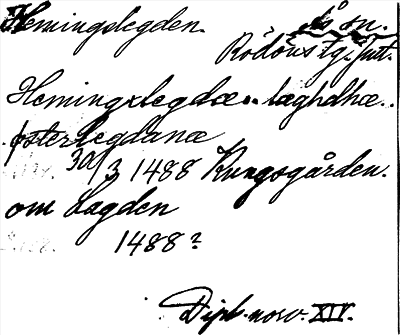 Hemingslegden. Ås sn.
Rödöns tg. Jmt.
Hemingxlegdæ.. læghdhæ..
østerlegdanæ
30/3 1488 Kungsgården.
om Lägden
1488?
Dipl. norv. XIV.